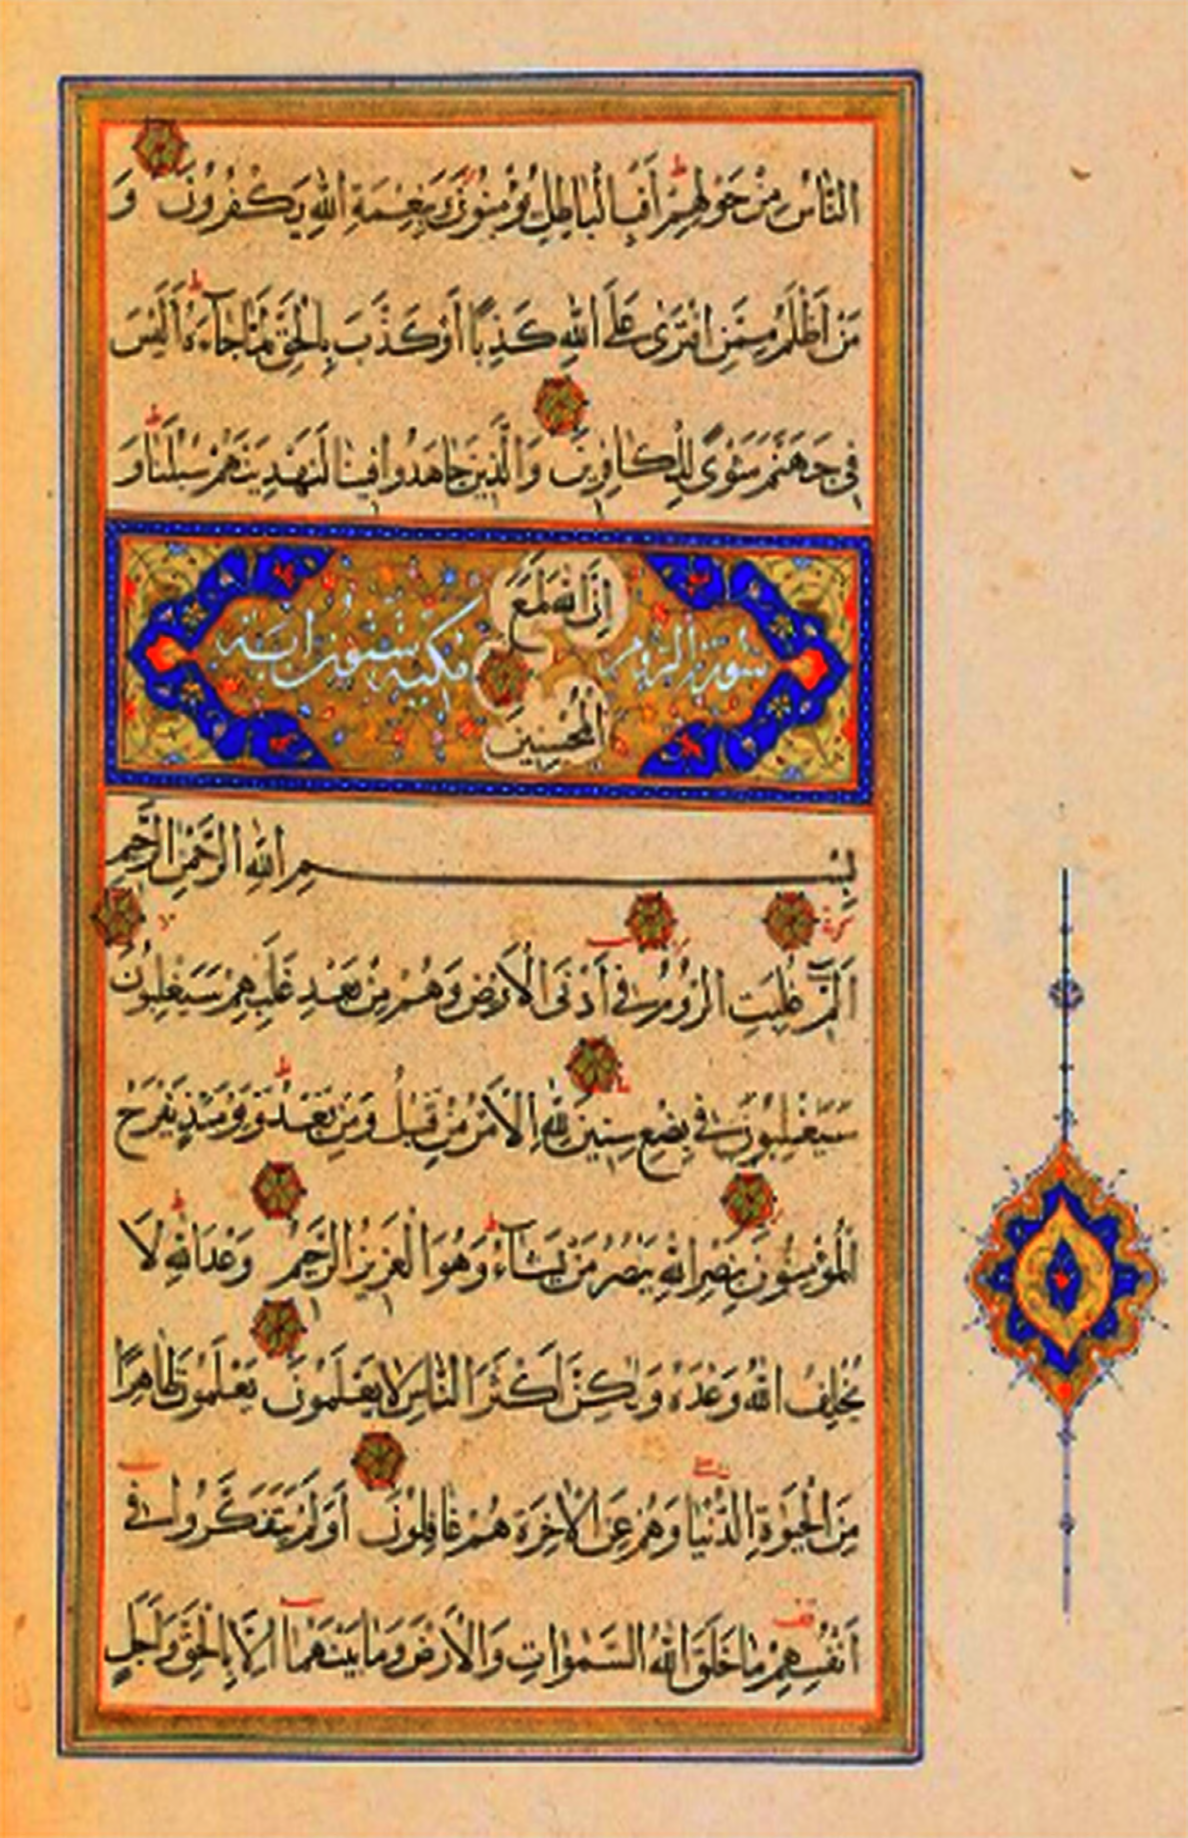 النَّاسُ مِنْ حَوْلِهِمْ أَفَبِالْبَاطِلِ يُؤْمِنُونَ وَبِنِعْمَةِ اللهِ يَكْفُرُونَ وَ
مَنْ أَظْلَمُ مِمَّنِ افْتَرَى عَلَى اللهِ كَذِبًا أَوْ كَذَّبَ بِالْحَقِّ لَمَّا جَاءَهُ أَلَيْسَ
فِي جَهَنَّمَ مَثْوًى لِلْكَافِرِينَ وَالَّذِينَ جَاهَدُوا فِينَا لَنَهْدِيَنَّهُمْ سُبُلَنَا وَ
إِنَّ اللهَ لَمَعَ
سورة الروم مكية ستون اية
الْمُحْسِنِينَ
بِسْمِ اللهِ الرَّحْمَنِ الرَّحِيمِ
الم غُلِبَتِ الرُّومُ فِي أَدْنَى الْأَرْضِ وَهُمْ مِنْ بَعْدِ غَلَبِهِمْ سَيَغْلِبُونَ
سَيَغْلِبُونَ فِي بِضْعِ سِنِينَ لِلَّهِ الْأَمْرُ مِنْ قَبْلُ وَمِنْ بَعْدُ وَيَوْمَئِذٍ يَفْرَحُ
الْمُؤْمِنُونَ بِنَصْرِ اللهِ يَنْصُرُ مَنْ يَشَاءُ وَهُوَ الْعَزِيزُ الرَّحِيمُ وَعْدَ اللهِ لَا
يُخْلِفُ اللهُ وَعْدَهُ وَلَكِنَّ أَكْثَرَ النَّاسِ لَا يَعْلَمُونَ يَعْلَمُونَ ظَاهِرًا
مِنَ الْحَيَوةِ الدُّنْيَا وَهُمْ عَنِ الْآخِرَةِ هُمْ غَافِلُونَ أَوَلَمْ يَتَفَكَّرُوا فِي
أَنْفُسِهِمْ مَا خَلَقَ اللهُ السَّمَوَاتِ وَالْأَرْضَ وَمَا بَيْنَهُمَا إِلَّا بِالْحَقِّ وَأَجَلٍ